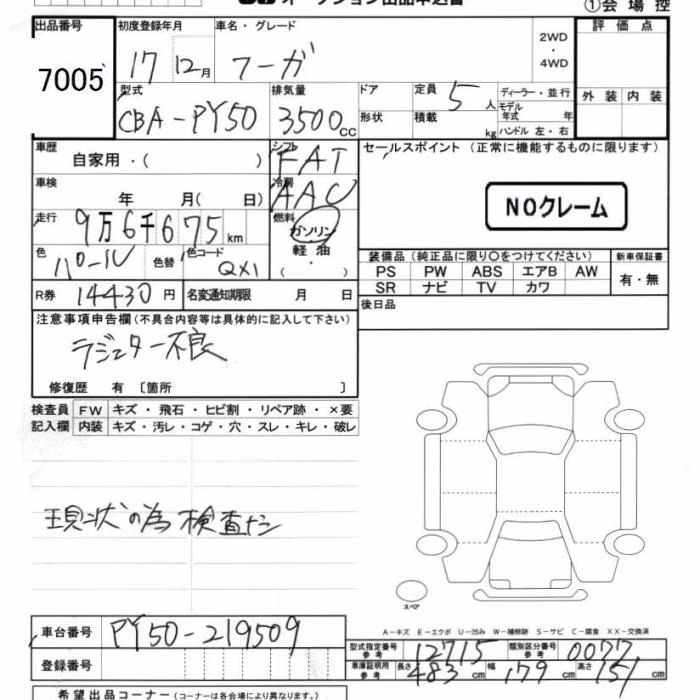 オークション出品申込書
①会場控
出品番号 7005
初度登録年月 17 12月
車名・グレード フーガ
2WD ・ 4WD
評価点
外装 内装
型式 CBA-PY50
排気量 3500cc
ドア
形状
定員 5人
積載 kg
ディーラー・並行
モデル年式 年
ハンドル 左・右
車歴 自家用・( )
シフト FAT
セールスポイント(正常に機能するものに限ります)
NOクレーム
車検 年 月( 日)
冷房 AAC
走行 9万6千675km
燃料 ガソリン・軽油・( )
色 パール 色替 色コード QX1
装備品(純正品に限り○をつけてください)
新車保証書
PS PW ABS エアB AW
SR ナビ TV カワ
有・無
R券 14430円 名変通知期限 月 日
後日品
注意事項申告欄(不具合内容等は具体的に記入して下さい)
ラジエター不良
修復歴 有 〔箇所 〕
検査員 FW キズ・飛石・ヒビ割・リペア跡・×要
記入欄 内装 キズ・汚レ・コゲ・穴・スレ・キレ・破レ
現状の為検査ナシ
スペア
A-キズ E-エクボ U-凹み W-補修跡 S-サビ C-腐食 XX-交換済
車台番号 PY50-219509
型式指定番号 参考 12715 類別区分番号 参考 0077
登録番号
車庫証明用 参考 長さ 483cm 幅 179cm 高さ 151cm
希望出品コーナー(コーナーは各会場により異なります。)